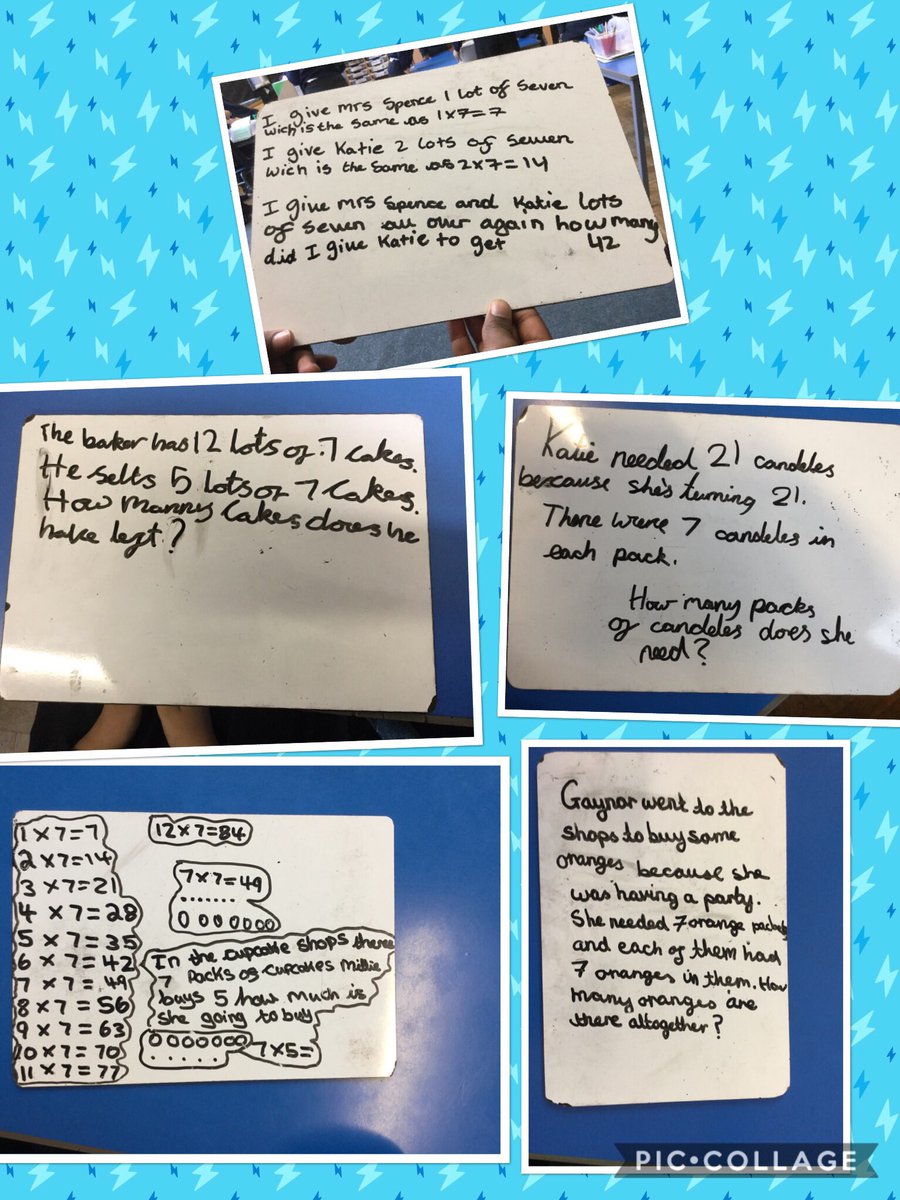 I give mrs Spence 1 lot of Seven
wich is the same as 1x7=7
I give Katie 2 lots of sewen
wich is the same as 2x7=14
I give mrs Spence and Katie lots
of seven all over again how many
did I give Katie to get 42
The baker has 12 lots of 7 cakes.
He sells 5 lots of 7 cakes.
How manny cakes does he
hake left?
Katie needed 21 candeles
because she's turning 21.
There were 7 candeles in
each pack.
How many packs
of candeles does she
need?
1 x 7 = 7
2 x 7 = 14
3 x 7 = 21
4 x 7 = 28
5 x 7 = 35
6 x 7 = 42
7 x 7 = 49
8 x 7 = 56
9 x 7 = 63
10 x 7 = 70
11 x 7 = 77
12 x 7 = 84
7 x 7 = 49
In the cupcake shops there
7 packs of cupcakes Millie
buys 5 how much is
she going to buy
7 x 5 =
Gaynor went to the
shops to buy some
oranges because she
was having a party.
She needed 7 orange
and each of them had
7 oranges in them. How
many oranges are
there altogether?
PIC•COLLAGE